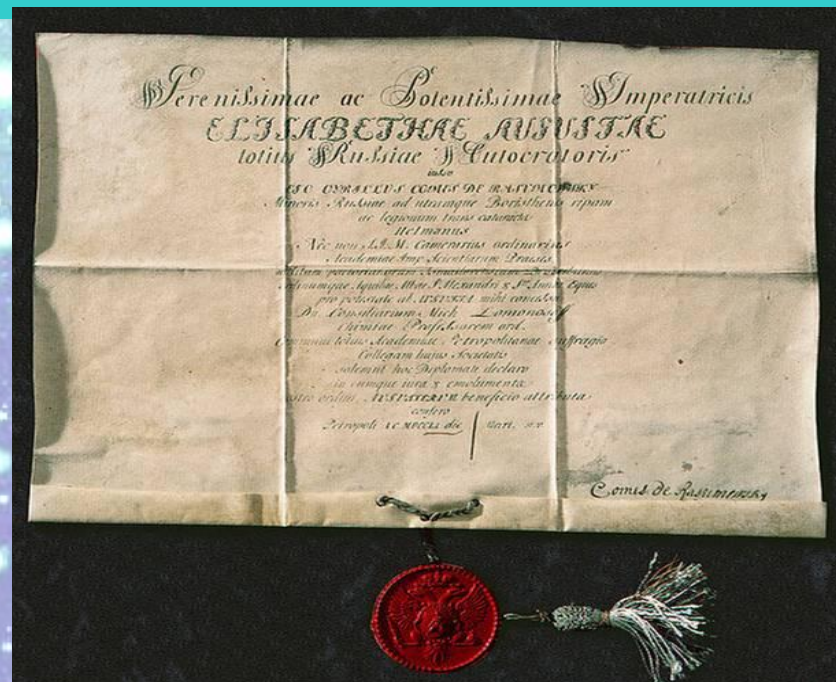 Serenissimae ac Potentissimae Imperatricis
ELISABETHAE AUGUSTAE
totius Russiae Autocratoris
iussu
EGO CYRILLUS COMES DE RASUMOWSKY
Minoris Russiae ad utramque Boristhenis ripam
ac legionum trans cataracta
Hetmanus
Nec non S.I.M. Camerarius ordinarius
Academiae Imp. Scientiarum Praeses
ordinumque Aquilae Albae S. Alexandri & S. Annae Eques
pro potestate ab AUGUSTA mihi concessa
Dn. Consiliarium Mich. Lomonosoff
Chimiae Professorem ord.
communi totius Academiae Petropolitanae suffragio
Collegam hujus Societatis
solemni hoc Diplomate declaro
in eumque iura & emolumenta
nostro ordini AUGUSTORUM beneficio attributa
confero
Petropoli die Mart.
Comes de Rasumowsky